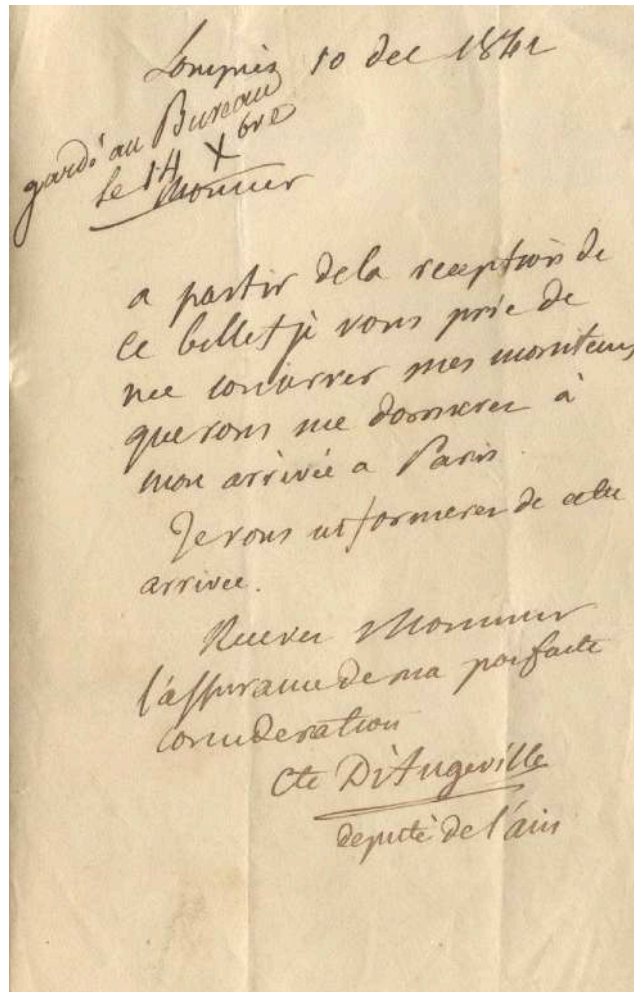 Lompnès 10 dec 1841
gardé au Bureau
le 14 Xbre
Monsieur
a partir de la reception de
ce billet je vous prie de
me conserver mes moniteurs
que vous me donnerez à
mon arrivée a Paris.
Je vous informerez de cette
arrivée.
Recevez Monsieur
l'assurance de ma parfaite
consideration
Cte D'Angeville
deputé de l'ain